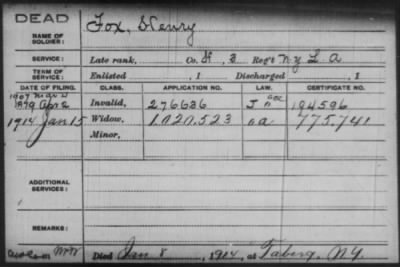 DEAD
NAME OF SOLDIER: Fox, Henry
SERVICE: Late rank, Co. H, 3 Reg't N.Y. L. A
TERM OF SERVICE: Enlisted , 1 Discharged , 1
DATE OF FILING. CLASS. APPLICATION NO. LAW. CERTIFICATE NO.
1879 Apr 2 Invalid, 276636 194596
1914 Jan 15 Widow, 1,020,523 775.741
Minor,
ADDITIONAL SERVICES:
REMARKS:
Died Jan 8, 1914, at Taberg, N.Y.